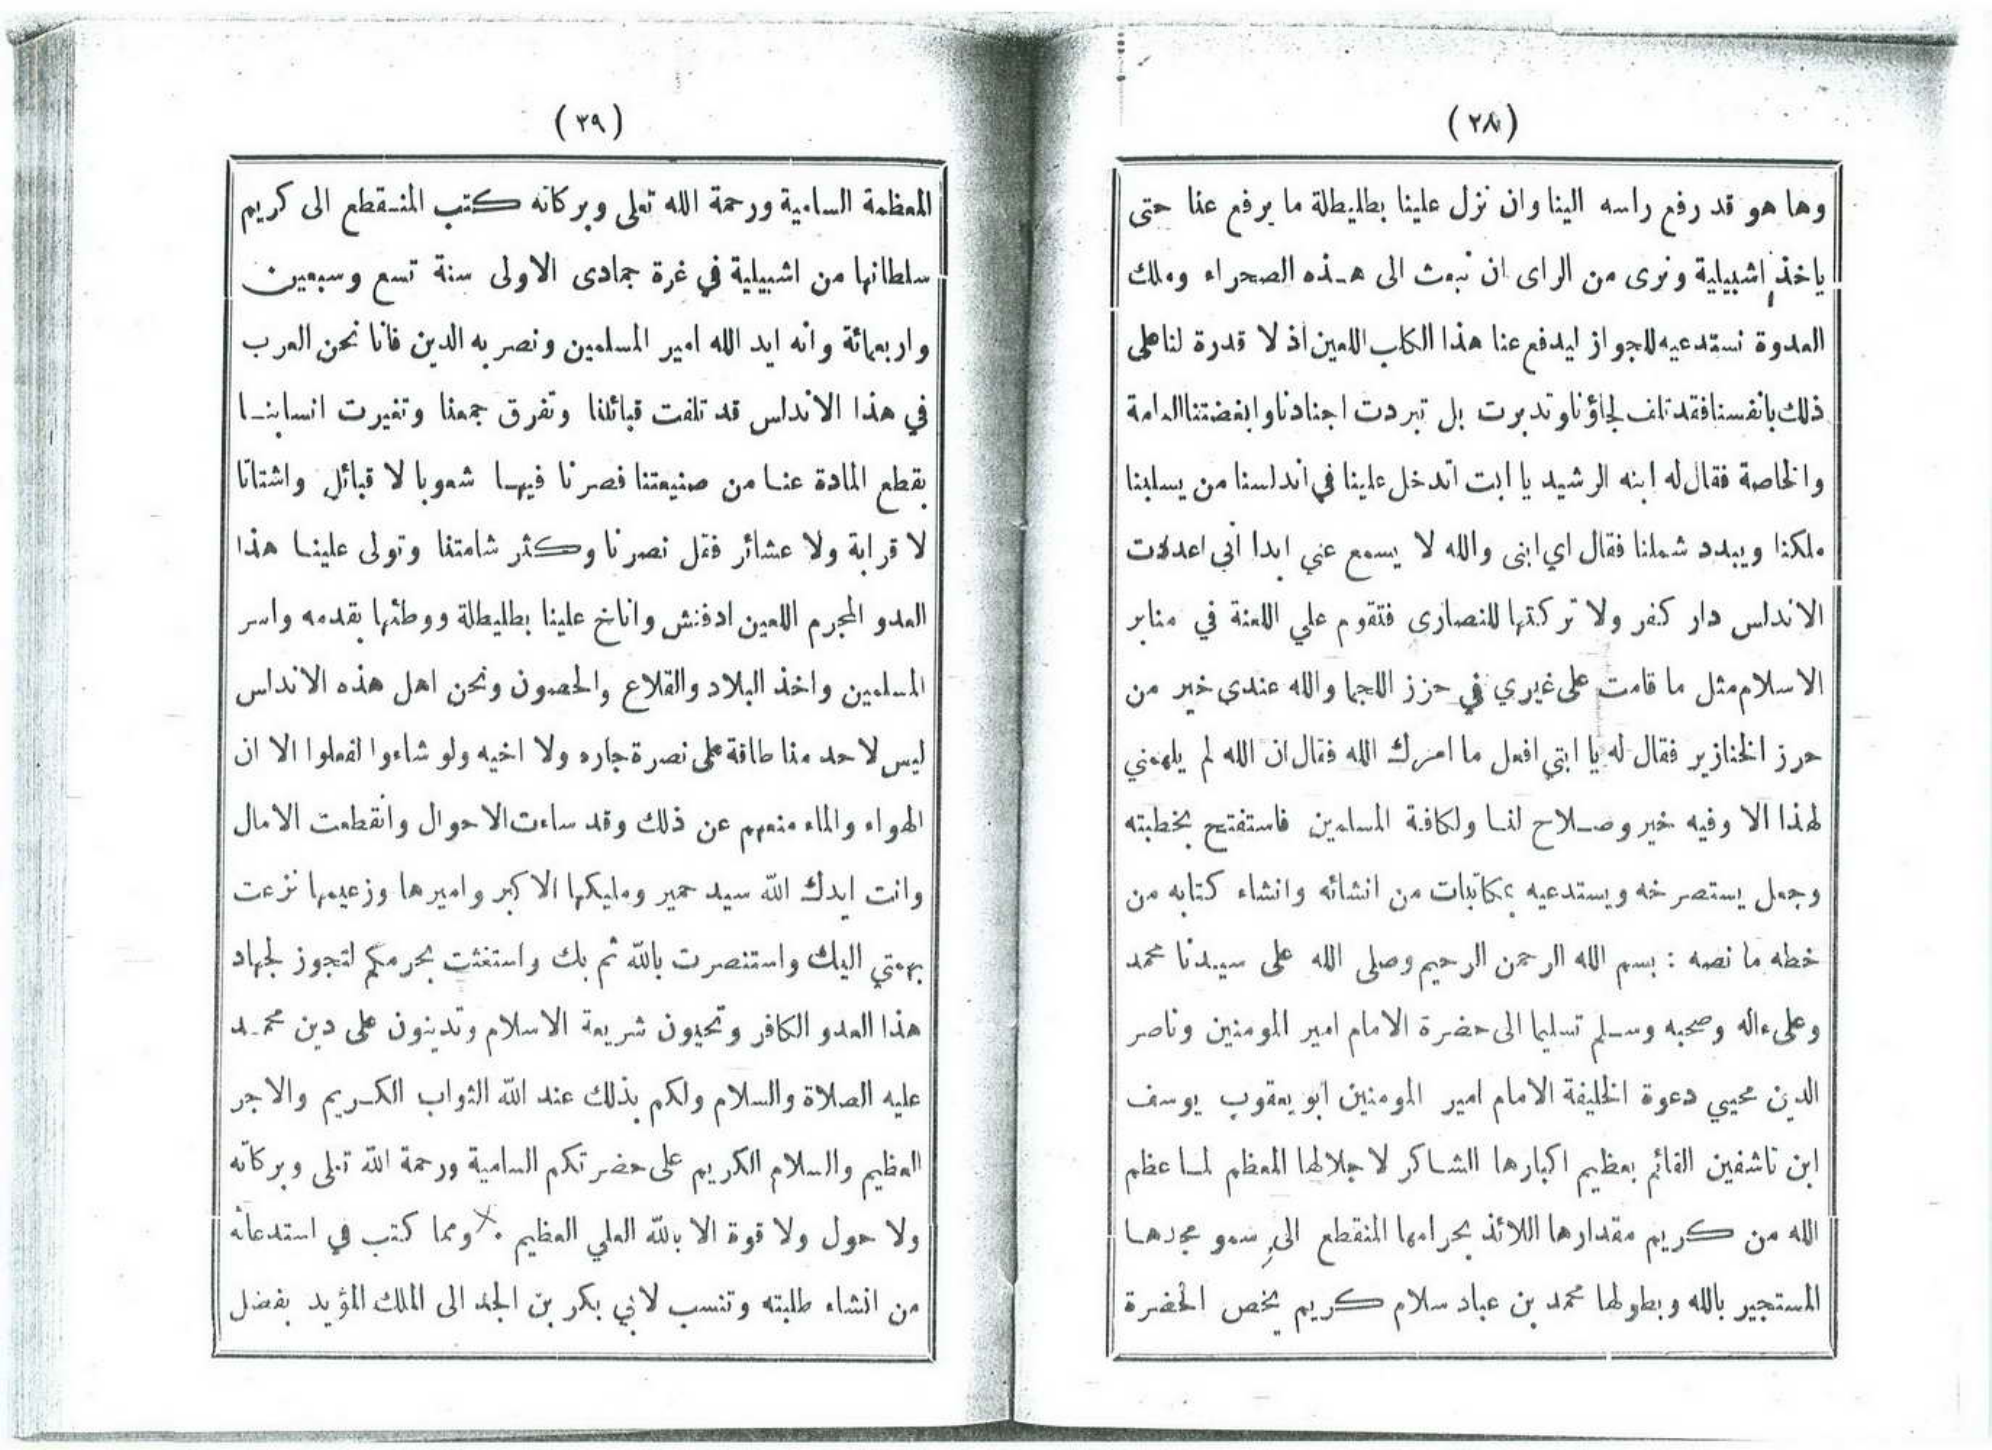 (٢٨)
وها هو قد رفع راسه الينا وان نزل علينا بطليطلة ما يرفع عنا حتى
ياخذ اشبيلية ونرى من الراى ان نبعث الى هذه الصحراء وملك
العدوة نستدعيه للجواز ليدفع عنا هذا الكلب اللعين اذ لا قدرة لنا على
ذلك بانفسنا فقد تلف لجاؤنا وتدبرت بل تبردت اجنادنا وابغضتنا العامة
والخاصة فقال له ابنه الرشيد يا ابت اتدخل علينا في اندلسنا من يسلبنا
ملكنا ويبدد شملنا فقال اي ابنى والله لا يسمع عني ابدا أني اعدت
الاندلس دار كفر ولا تركتها للنصارى فتقوم علي اللعنة في منابر
الاسلام مثل ما قامت على غيري في حزز اللجما والله عندى خير من
حرز الخنازير فقال له يا ابتي افعل ما امرك الله فقال ان الله لم يلهمني
لهذا الا وفيه خير وصلاح لنا ولكافة المسلمين فاستفتح بخطبته
وجعل يستصرخه ويستدعيه بمكاتبات من انشائه وانشاء كتابه من
خطه ما نصه : بسم الله الرحمن الرحيم وصلى الله على سيدنا محمد
وعلى ءاله وصحبه وسلم تسليما الى حضرة الامام امير المومنين وناصر
الدين محيي دعوة الخليفة الامام امير المومنين ابو يعقوب يوسف
ابن تاشفين القائم بعظيم اكبارها الشاكر لاجلالها المعظم لما عظم
الله من كريم مقدارها اللائذ بحرامها المنقطع الى سمو مجدها
المستجير بالله وبطولها محمد بن عباد سلام كريم يخص الحضرة
(٢٩)
المعظمة السامية ورحمة الله تعلى وبركاته كتب المنقطع الى كريم
سلطانها من اشبيلية في غرة جمادى الاولى سنة تسع وسبعين
واربعمائة وانه ايد الله امير المسلمين ونصر به الدين فانا نحن العرب
في هذا الاندلس قد تلفت قبائلنا وتفرق جمعنا وتغيرت انسابنا
بقطع المادة عنا من صنيعتنا فصرنا فيها شعوبا لا قبائل واشتاتا
لا قرابة ولا عشائر فقل نصرنا وكثر شامتنا وتولى علينا هذا
العدو المجرم اللعين ادفنش واناخ علينا بطليطلة ووطئها بقدمه واسر
المسلمين واخذ البلاد والقلاع والحصون ونحن اهل هذه الاندلس
ليس لاحد منا طاقة على نصرة جاره ولا اخيه ولو شاءوا لفعلوا الا ان
الهواء والماء منعهم عن ذلك وقد ساءت الاحوال وانقطعت الامال
وانت ايدك الله سيد حمير ومليكها الاكبر واميرها وزعيمها نزعت
بهمتي اليك واستنصرت بالله ثم بك واستغثت بحرمكم لتجوز لجهاد
هذا العدو الكافر وتحيون شريعة الاسلام وتدينون على دين محمد
عليه الصلاة والسلام ولكم بذلك عند الله الثواب الكريم والاجر
العظيم والسلام الكريم على حضرتكم السامية ورحمة الله تعلى وبركاته
ولا حول ولا قوة الا بالله العلي العظيم . ومما كتب في استدعائه
من انشاء طلبته وتنسب لابي بكر بن الجد الى الملك المؤيد بفضل